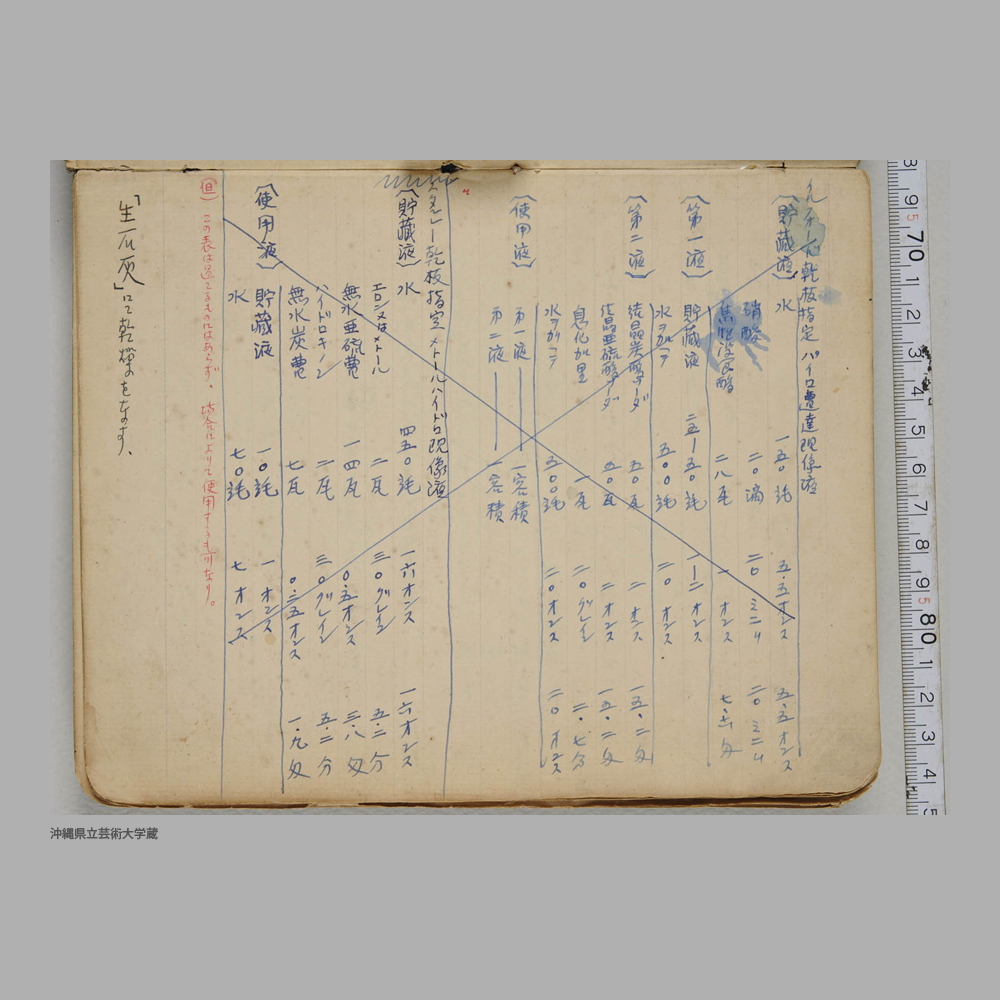 乾板指定パイロ現像液
（貯蔵液）水 一五〇託 五・五オンス 五・五オンス
硝酸 二〇滴 二〇ミニム 二〇ミニム
焦性没食酸 二八瓦 一オンス 七・六匁
（第一液）貯蔵液 二五ー五〇託 一ー二オンス
水ヲ加ヘテ 五〇〇託 二〇オンス
（第二液）結晶炭酸ソーダ 五〇瓦 二オンス 一五・二匁
結晶亜硫酸ソーダ 五〇瓦 二オンス 一五・二匁
臭化加里 一瓦 二〇グレイン 二・七分
水ヲ加ヘテ 五〇〇託 二〇オンス 二〇オンス
（使用液）第一液 一容積
第二液 一容積
乾板指定メトールハイドロ現像液
（貯蔵液）水 四五〇託 一六オンス 一六オンス
エロン又はメトール 二瓦 三〇グレイン 五・二分
無水亜硫曹 一四瓦 〇・五オンス 三・八匁
ハイドロキノン 二瓦 三〇グレイン 五・二分
無水炭曹 七瓦 〇・二五オンス 一・九匁
（使用液）貯蔵液 一〇託 一オンス
水 七〇託 七オンス
（但）この表は Malformed
「生石灰」にて乾燥をなす、
3 9 5 70 1 2 3 4 5 6 7 8 9 5 80 1 2 3 4 5
沖縄県立芸術大学蔵